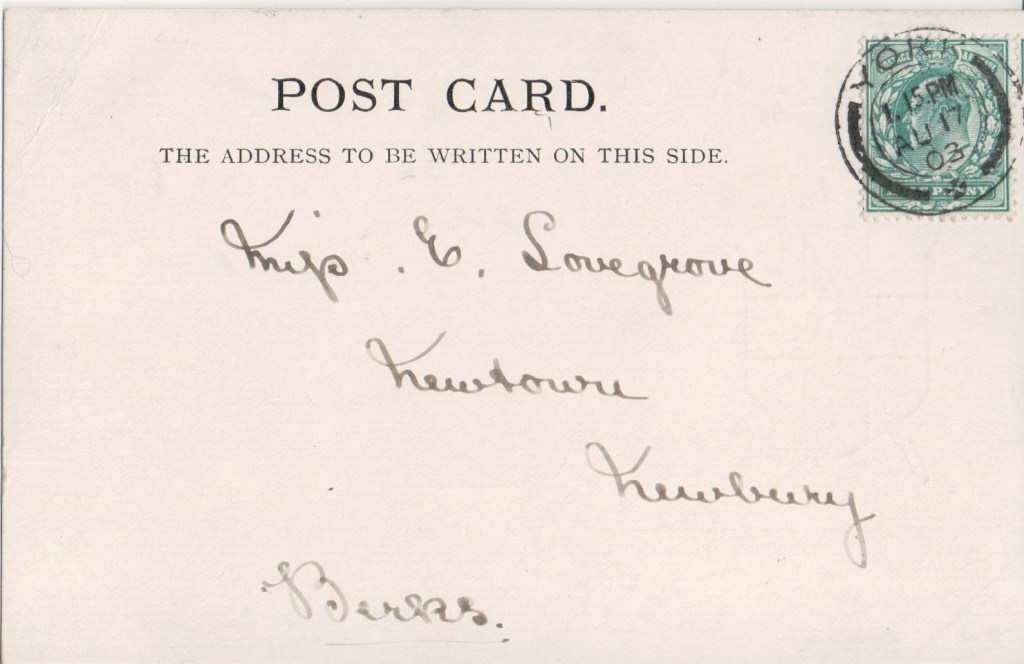 POST CARD.
THE ADDRESS TO BE WRITTEN ON THIS SIDE.
YORK
1.15 PM
AU 17
03
PENNY
Miss . E. Lovegrove
Newtown
Newbury
Berks.